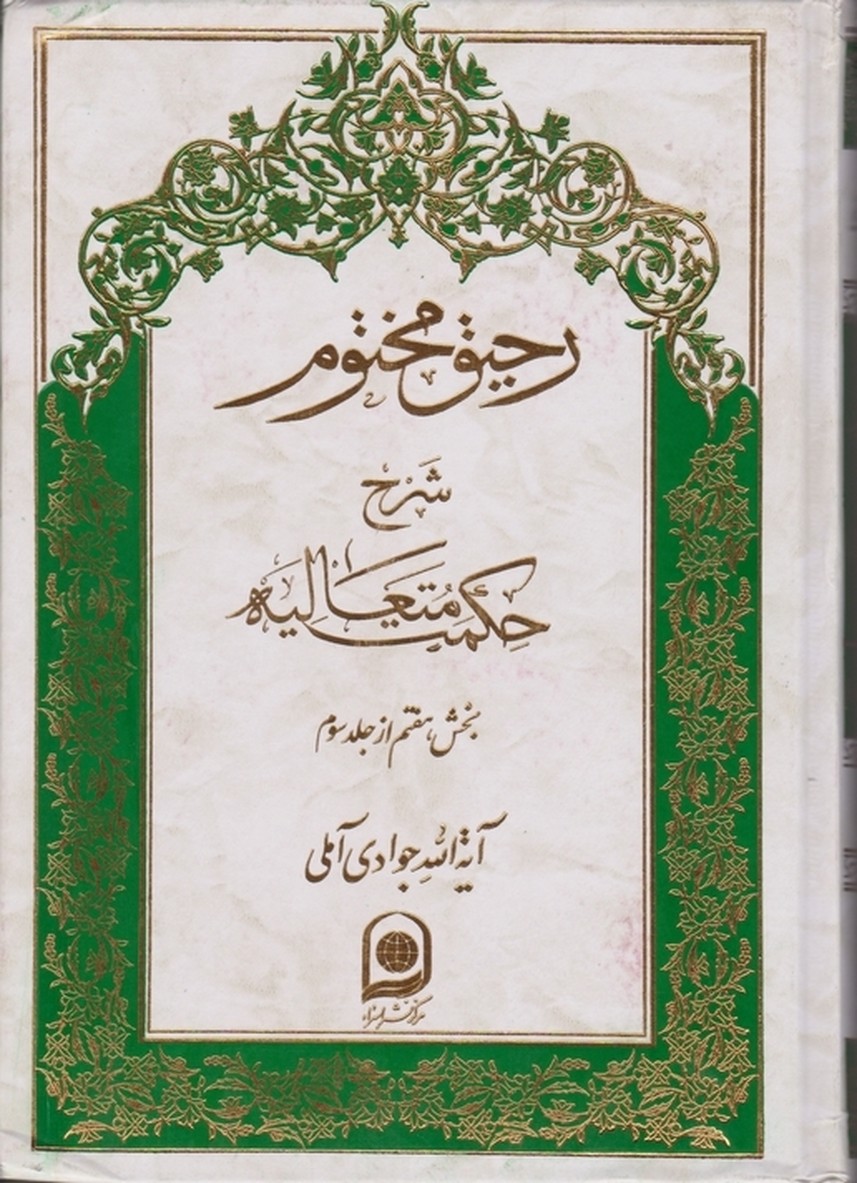 رحیق مختوم
شرح
حکمت متعالیه
بخش هفتم از جلد سوم
آیة الله جوادی آملی
مرکز نشر اسراء